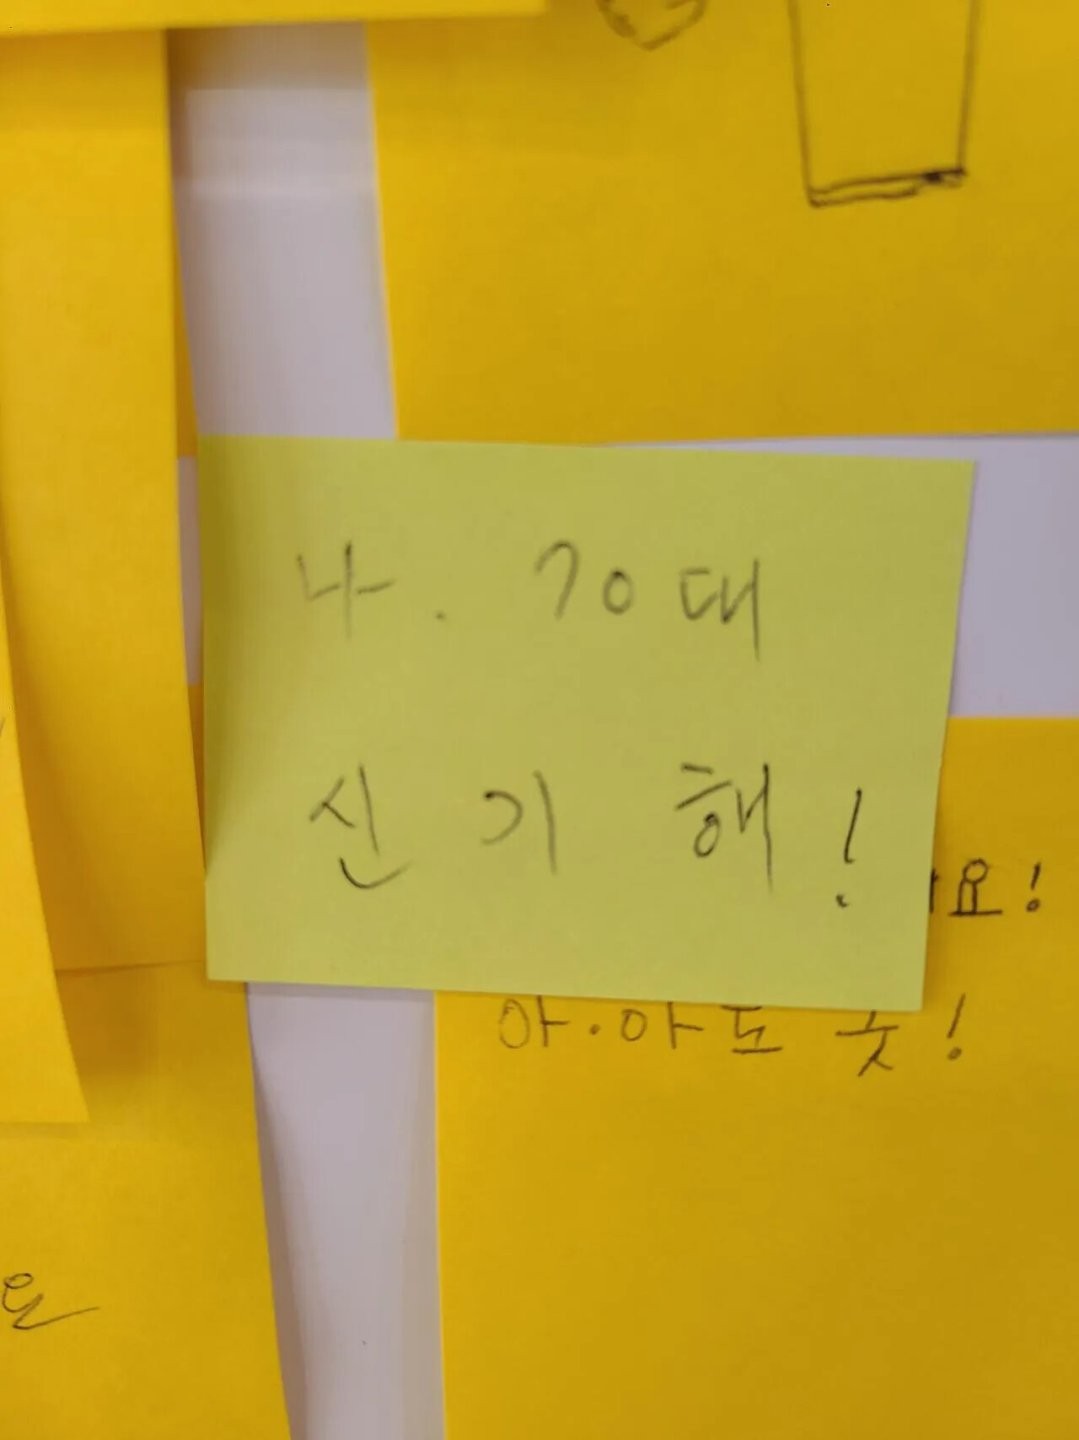 나. 70대
신기해!
요!
아.아도 굿!